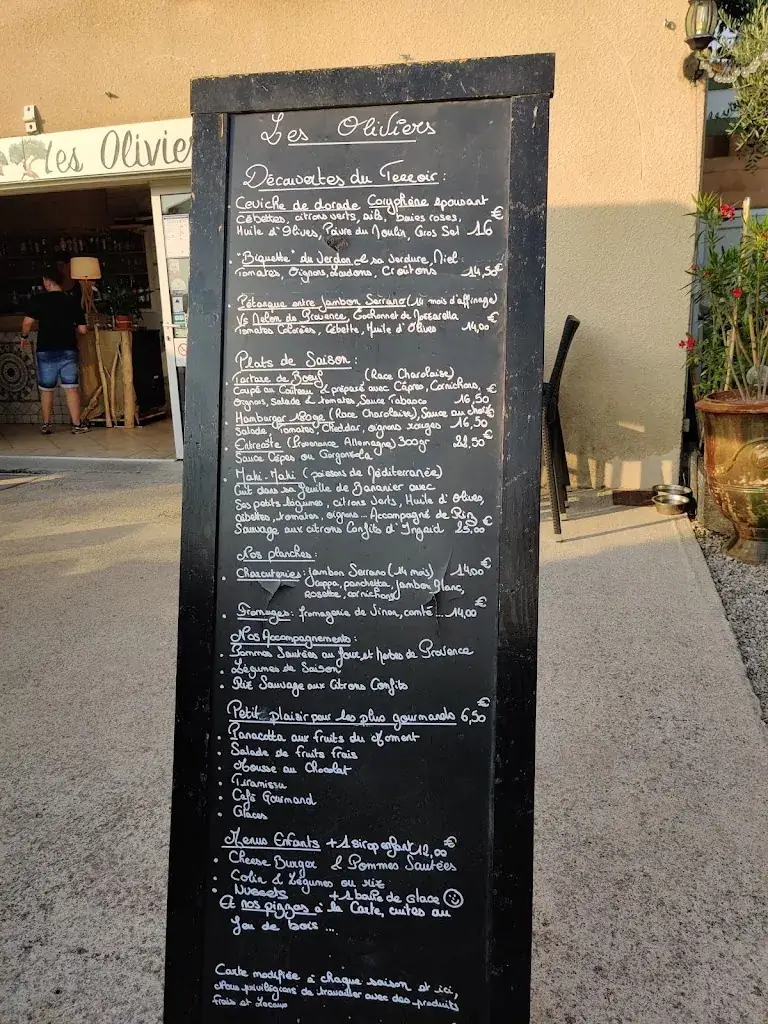 Les Olivier
Les Oliviers
Découvertes du Terroir :
Ceviche de dorade Coryphène épousant
Cébettes, citrons verts, aïls, baies roses, €
Huile d'Olives, Poivre du Moulin, Gros Sel 16
. "Biquette" du Verdon et sa Verdure, Miel
Tomates, Oignons, Lardons, Croûtons 14,50€
. Pétanque entre Jambon Serrano (14 mois d'affinage)
Vs Melon de Provence, Cochonnet de Mozzarella €
Tomates Colorées, Cébette, Huile d'Olives 14,00
Plats de Saison :
. Tartare de Boeuf (Race Charolaise)
Coupé au Couteau & préparé avec Câpres, Cornichons, €
Oignons, Salade & tomates, Sauce Tabasco 16,50
. Hamburger 180gr (Race Charolaise), Sauce au choix €
Salade, Tomates, Cheddar, oignons rouges 16,50
. Entrecôte (Provenance Allemagne) 300gr 22,50€
Sauce Cèpes ou Gorgonzola
. Mahi-Mahi (poissons de Méditerranée)
Cuit dans sa feuille de Bananier avec
Ses petits légumes, citrons verts, Huile d'Olives,
cébettes, tomates, oignons... Accompagné de Riz
Sauvage aux citrons Confits d'Ingrid 25,00€
Nos planches :
. Charcuteries : Jambon Serrano (14 mois) 14,00€
Coppa, panchetta, Jambon Blanc,
Rosette, cornichons
. Fromages : fromagerie de Vinon, comté ... 14,00€
Nos Accompagnements :
. Pommes Sautées au four et Herbes de Provence
. Légumes de Saison
. Riz Sauvage aux Citrons Confits
Petit plaisir pour les plus gourmands 6,50€
. Panacotta aux fruits du Moment
. Salade de fruits frais
. Mousse au Chocolat
. Tiramissu
. Café Gourmand
. Glaces
Menus Enfants + 1 sirop enfant 12,00€
. Cheese Burger & Pommes Sautées
. Colin & Légumes ou riz
. Nuggets + 1 boule de glace
Et nos pizzas à la Carte, cuites au
feu de bois ...
Carte modifiée à chaque saison et ici,
Nous privilégions de travailler avec des produits
frais et Locaux